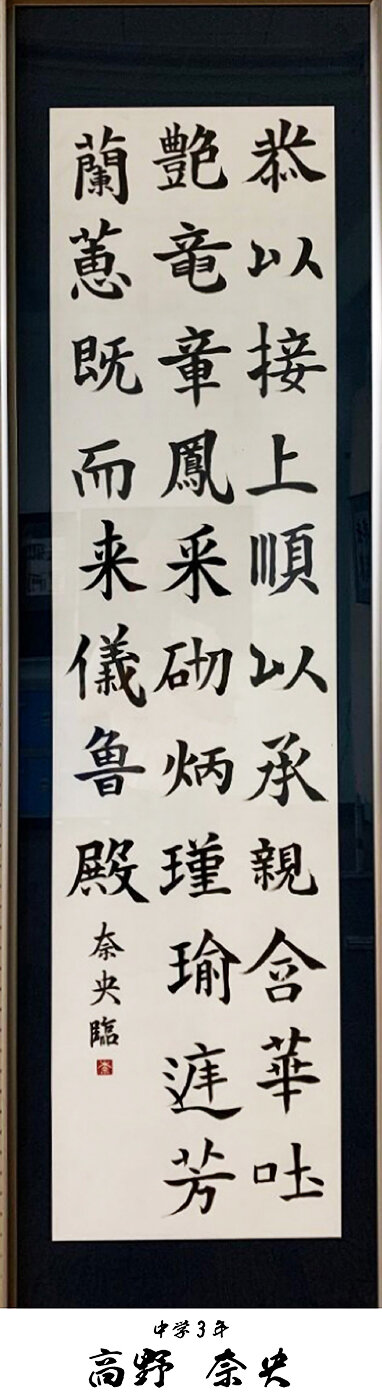 恭以接上順以承親含華吐
艶竜章鳳采砌炳瑾瑜庭芳
蘭蕙既而来儀魯殿 奈央臨
中学3年
高野 奈央